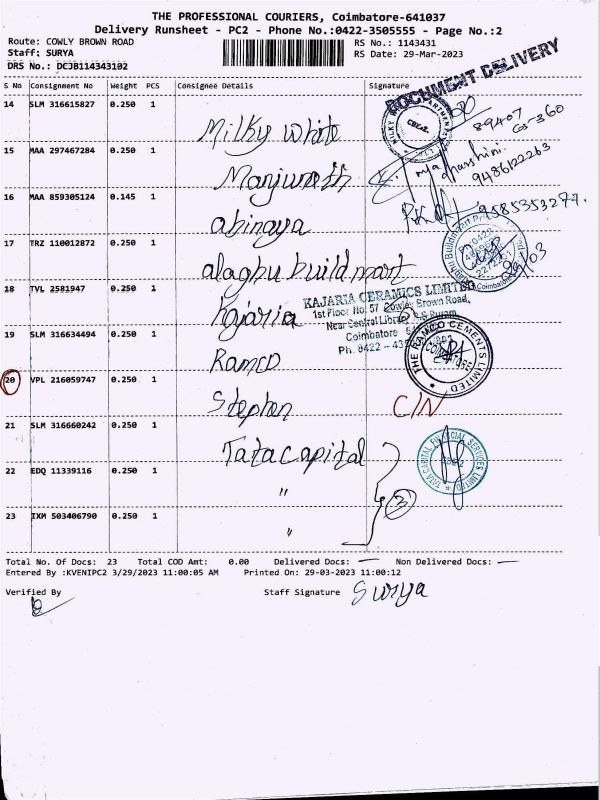 THE PROFESSIONAL COURIERS, Coimbatore-641037
Delivery Runsheet - PC2 - Phone No.:0422-3505555 - Page No.:2
Route: COWLY BROWN ROAD
RS No.: 1143431
Staff: SURYA
RS Date: 29-Mar-2023
DRS No.: DCJB114343102
DOCUMENT DELIVERY
S No Consignment No Weight PCS Consignee Details Signature
14 SLM 316615827 0.250 1 Milky white
89407
15 MAA 297467284 0.250 1 Manjunath
9486122263
16 MAA 859305124 0.145 1 abinaya
9585353277.
17 TRZ 110012872 0.250 1 alaghu buildmart
18 TVL 2581947 0.250 1 Kajaria
KAJARIA CERAMICS LIMITED
1st Floor No. 57 Cowley Brown Road,
Near Central Library
Coimbatore
Ph. 0422 -
19 SLM 316634494 0.250 1 Ramco
THE RAMCO CEMENTS LIMITED
20 VPL 216059747 0.250 1 Stephen C/N
21 SLM 316660242 0.250 1 Tata capital
TATA CAPITAL FINANCIAL SERVICES LIMITED
22 EDQ 11339116 0.250 1 "
3
23 IXM 503406790 0.250 1 "
Total No. Of Docs: 23 Total COD Amt: 0.00 Delivered Docs: — Non Delivered Docs: —
Entered By :KVENIPC2 3/29/2023 11:00:05 AM Printed On: 29-03-2023 11:00:12
Verified By Staff Signature Surya